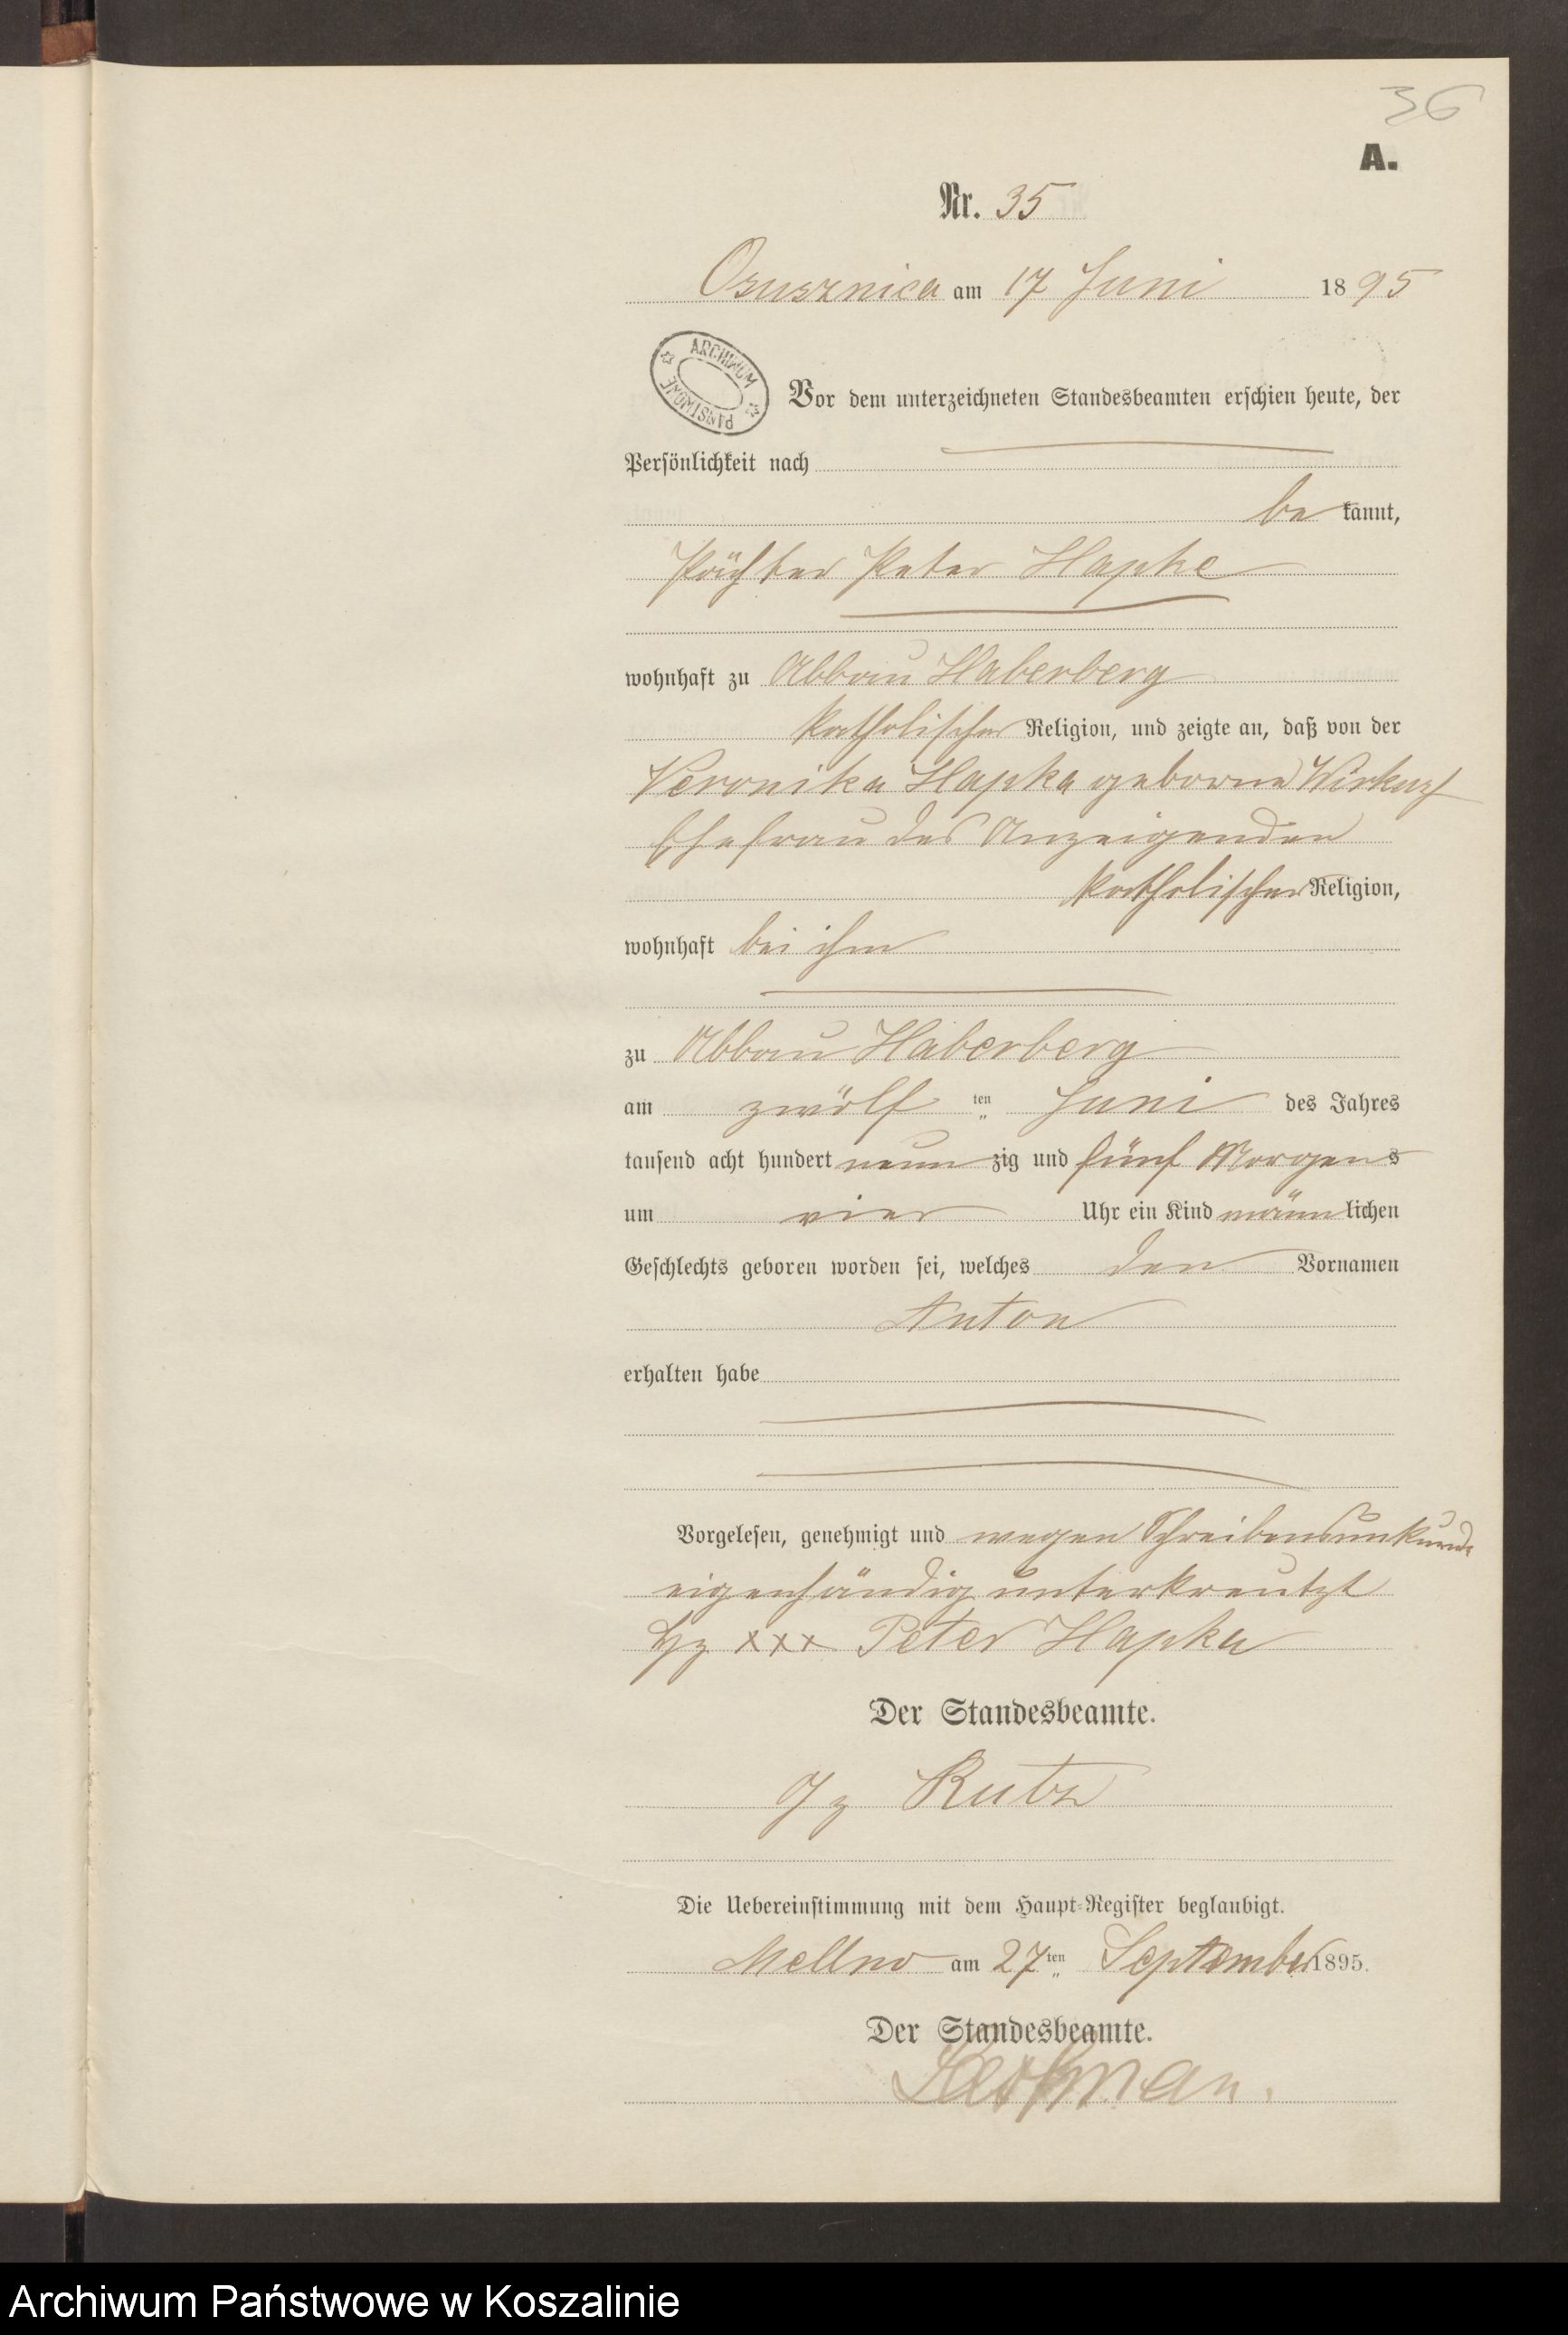 36
A.
Nr. 35
Osusznica am 17 Juni 1895
ARCHIWUM PAŃSTWOWE
Vor dem unterzeichneten Standesbeamten erschien heute, der
Persönlichkeit nach
be kannt,
Pächter Peter Hapke
wohnhaft zu Abbau Haberberg
katholischer Religion, und zeigte an, daß von der
Veronika Hapka geborne
Ehefrau des Anzeigenden
katholischer Religion,
wohnhaft bei ihm
zu Abbau Haberberg
am zwölf ten Juni des Jahres
tausend acht hundert neun zig und fünf Morgens
um vier Uhr ein Kind männlichen
Geschlechts geboren worden sei, welches den Vornamen
Anton
erhalten habe
Vorgelesen, genehmigt und wegen Schreibensunkunde
eigenhändig unterkreutzt
Hz xxx Peter Hapka
Der Standesbeamte.
gz Rutz
Die Uebereinstimmung mit dem Haupt-Register beglaubigt.
Mellno am 27ten September 1895.
Der Standesbeamte.
Archiwum Państwowe w Koszalinie